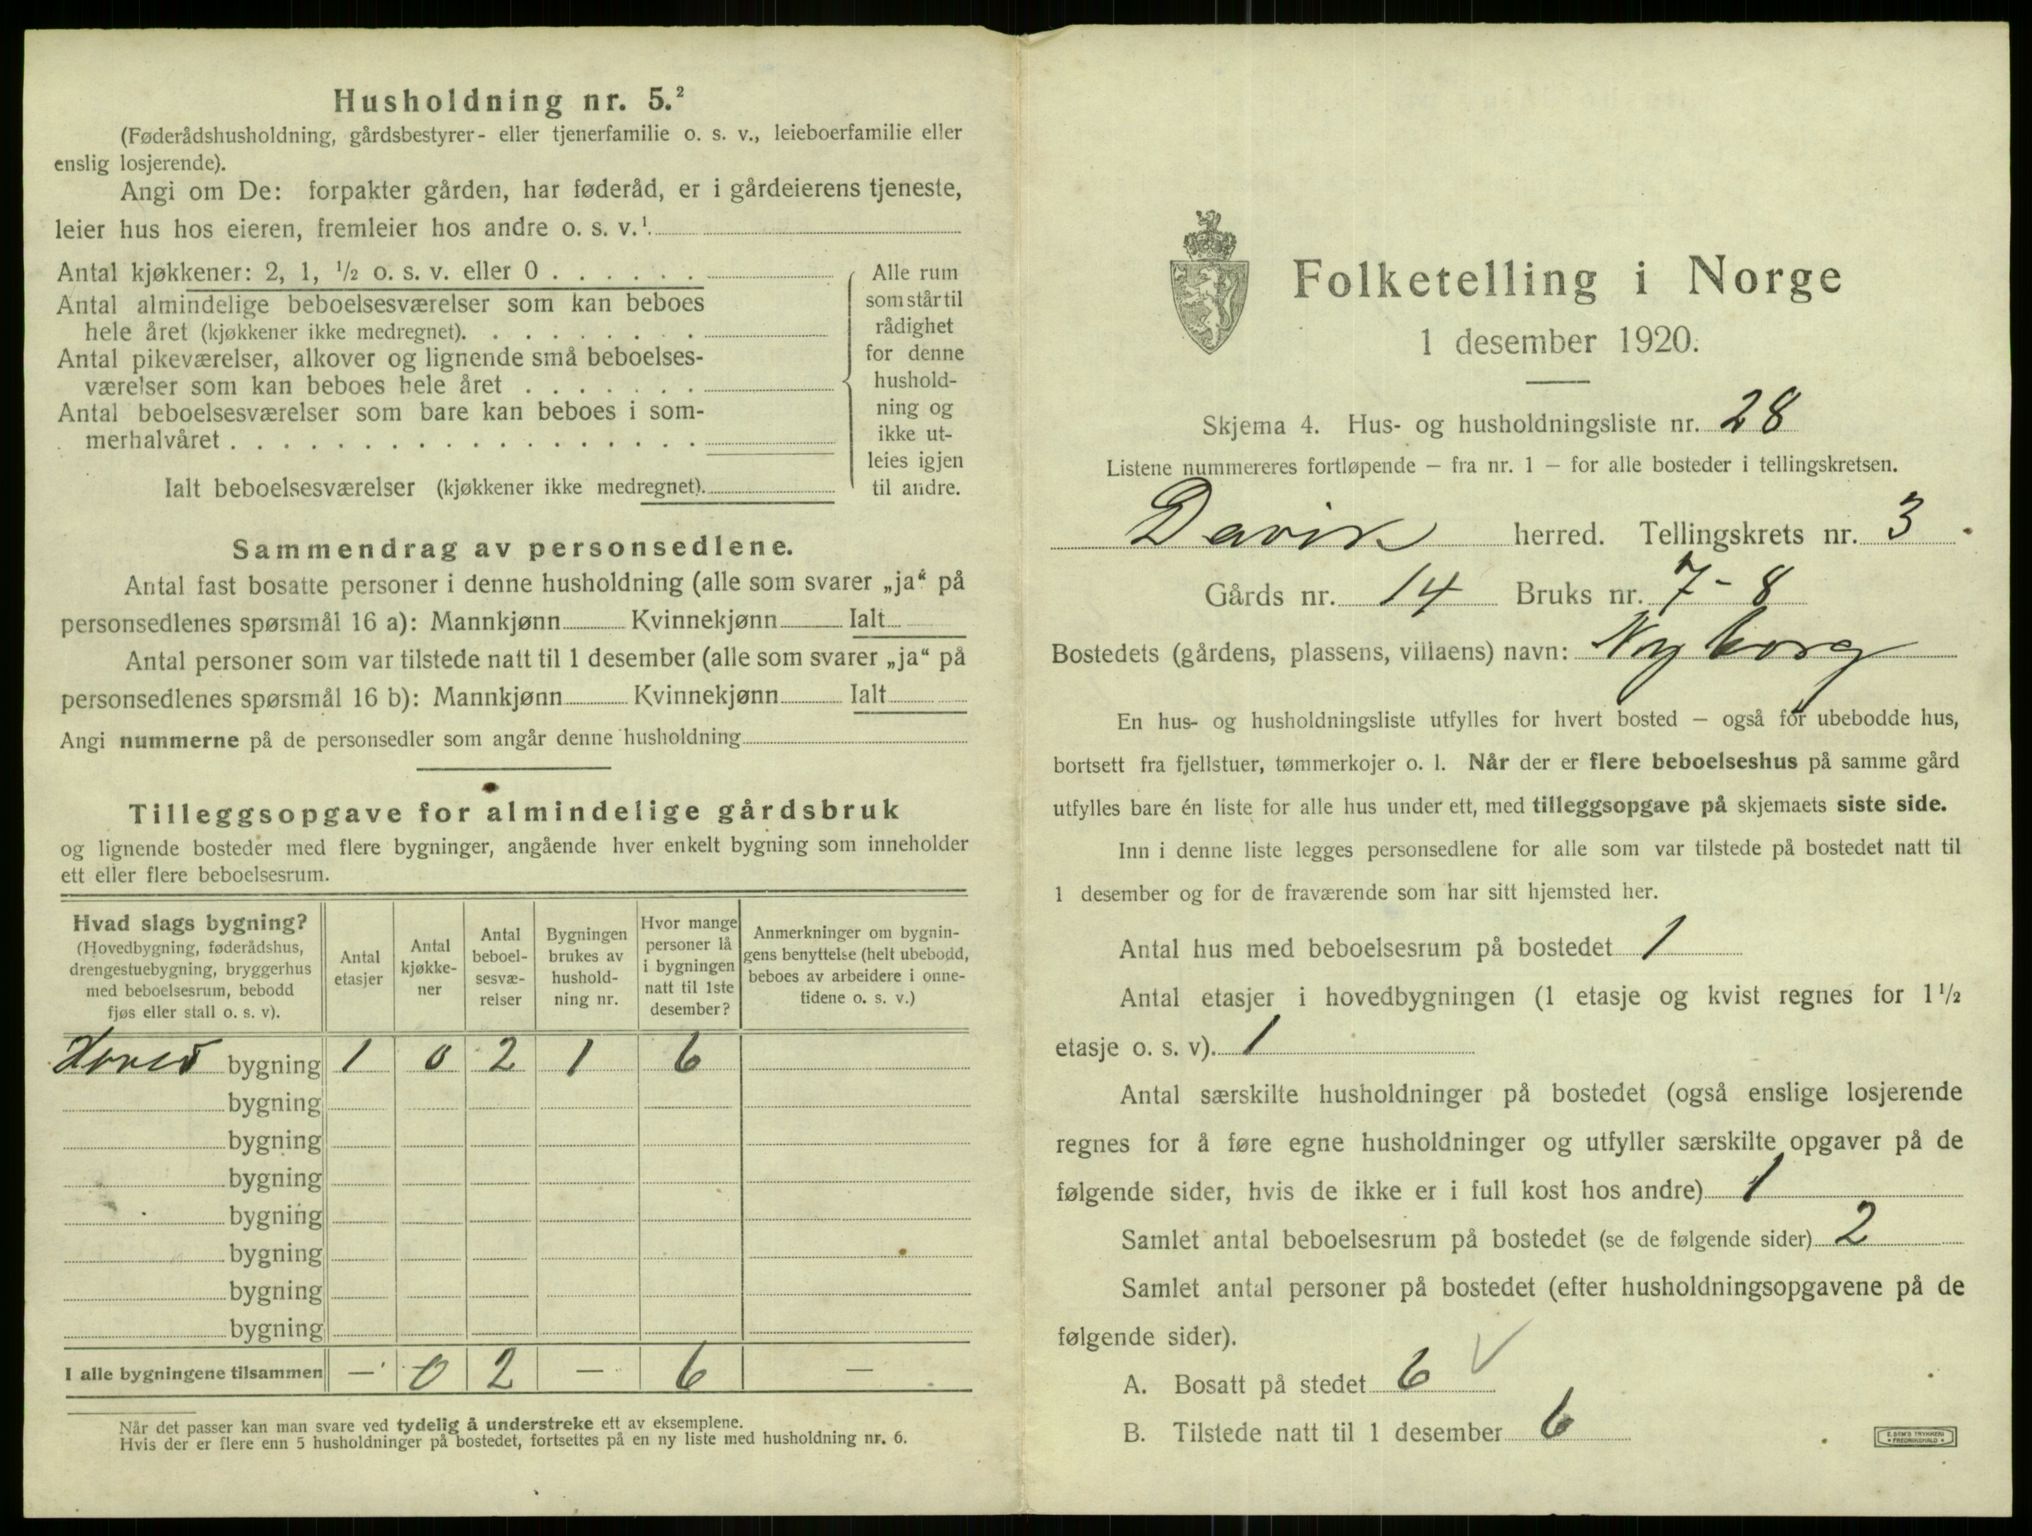 Husholdning nr. 5.²
(Føderådshusholdning, gårdsbestyrer- eller tjenerfamilie o. s. v., leieboerfamilie eller
enslig losjerende).
Angi om De: forpakter gården, har føderåd, er i gårdeierens tjeneste,
leier hus hos eieren, fremleier hos andre o. s. v.¹
Antal kjøkkener: 2, 1, ½ o. s. v. eller 0 . . . . . .
Antal almindelige beboelsesværelser som kan beboes
hele året (kjøkkener ikke medregnet). . . . . . . . .
Antal pikeværelser, alkover og lignende små beboelses-
værelser som kan beboes hele året . . . . . . .
Antal beboelsesværelser som bare kan beboes i som-
merhalvåret . . . . . . . . . . . . . . . . . .
Ialt beboelsesværelser (kjøkkener ikke medregnet).
Alle rum
som står til
rådighet
for denne
hushold-
ning og
ikke ut-
leies igjen
til andre.
Sammendrag av personsedlene.
Antal fast bosatte personer i denne husholdning (alle som svarer „ja“ på
personsedlenes spørsmål 16 a): Mannkjønn Kvinnekjønn Ialt
Antal personer som var tilstede natt til 1 desember (alle som svarer „ja“ på
personsedlenes spørsmål 16 b): Mannkjønn Kvinnekjønn Ialt
Angi nummerne på de personsedler som angår denne husholdning
Tilleggsopgave for almindelige gårdsbruk
og lignende bosteder med flere bygninger, angående hver enkelt bygning som inneholder
ett eller flere beboelsesrum.
Hvad slags bygning?
(Hovedbygning, føderådshus,
drengestuebygning, bryggerhus
med beboelsesrum, bebodd
fjøs eller stall o. s. v).
Antal
etasjer
Antal
kjøkke-
ner
Antal
beboel-
sesvæ-
relser
Bygningen
brukes av
hushold-
ning nr.
Hvor mange
personer lå
i bygningen
natt til 1ste
desember?
Anmerkninger om bygnin-
gens benyttelse (helt ubebodd,
beboes av arbeidere i onne-
tidene o. s. v.)
Hoved bygning 1 0 2 1 6
bygning
bygning
bygning
bygning
bygning
bygning
bygning
I alle bygningene tilsammen — 0 2 — 6 —
Når det passer kan man svare ved tydelig å understreke ett av eksemplene.
Hvis der er flere enn 5 husholdninger på bostedet, fortsettes på en ny liste med husholdning nr. 6.
Folketelling i Norge
1 desember 1920.
Skjema 4. Hus- og husholdningsliste nr. 28
Listene nummereres fortløpende — fra nr. 1 — for alle bosteder i tellingskretsen.
Davik herred. Tellingskrets nr. 3
Gårds nr. 14 Bruks nr. 7-8
Bostedets (gårdens, plassens, villaens) navn: Nyborg
En hus- og husholdningsliste utfylles for hvert bosted — også for ubebodde hus,
bortsett fra fjellstuer, tømmerkojer o. l. Når der er flere beboelseshus på samme gård
utfylles bare én liste for alle hus under ett, med tilleggsopgave på skjemaets siste side.
Inn i denne liste legges personsedlene for alle som var tilstede på bostedet natt til
1 desember og for de fraværende som har sitt hjemsted her.
Antal hus med beboelsesrum på bostedet 1
Antal etasjer i hovedbygningen (1 etasje og kvist regnes for 1½
etasje o. s. v). 1
Antal særskilte husholdninger på bostedet (også enslige losjerende
regnes for å føre egne husholdninger og utfyller særskilte opgaver på de
følgende sider, hvis de ikke er i full kost hos andre) 1
Samlet antal beboelsesrum på bostedet (se de følgende sider) 2
Samlet antal personer på bostedet (efter husholdningsopgavene på de
følgende sider).
A. Bosatt på stedet 6 ✓
B. Tilstede natt til 1 desember 6
E. SEM'S TRYKKERI
FREDRIKSHALD